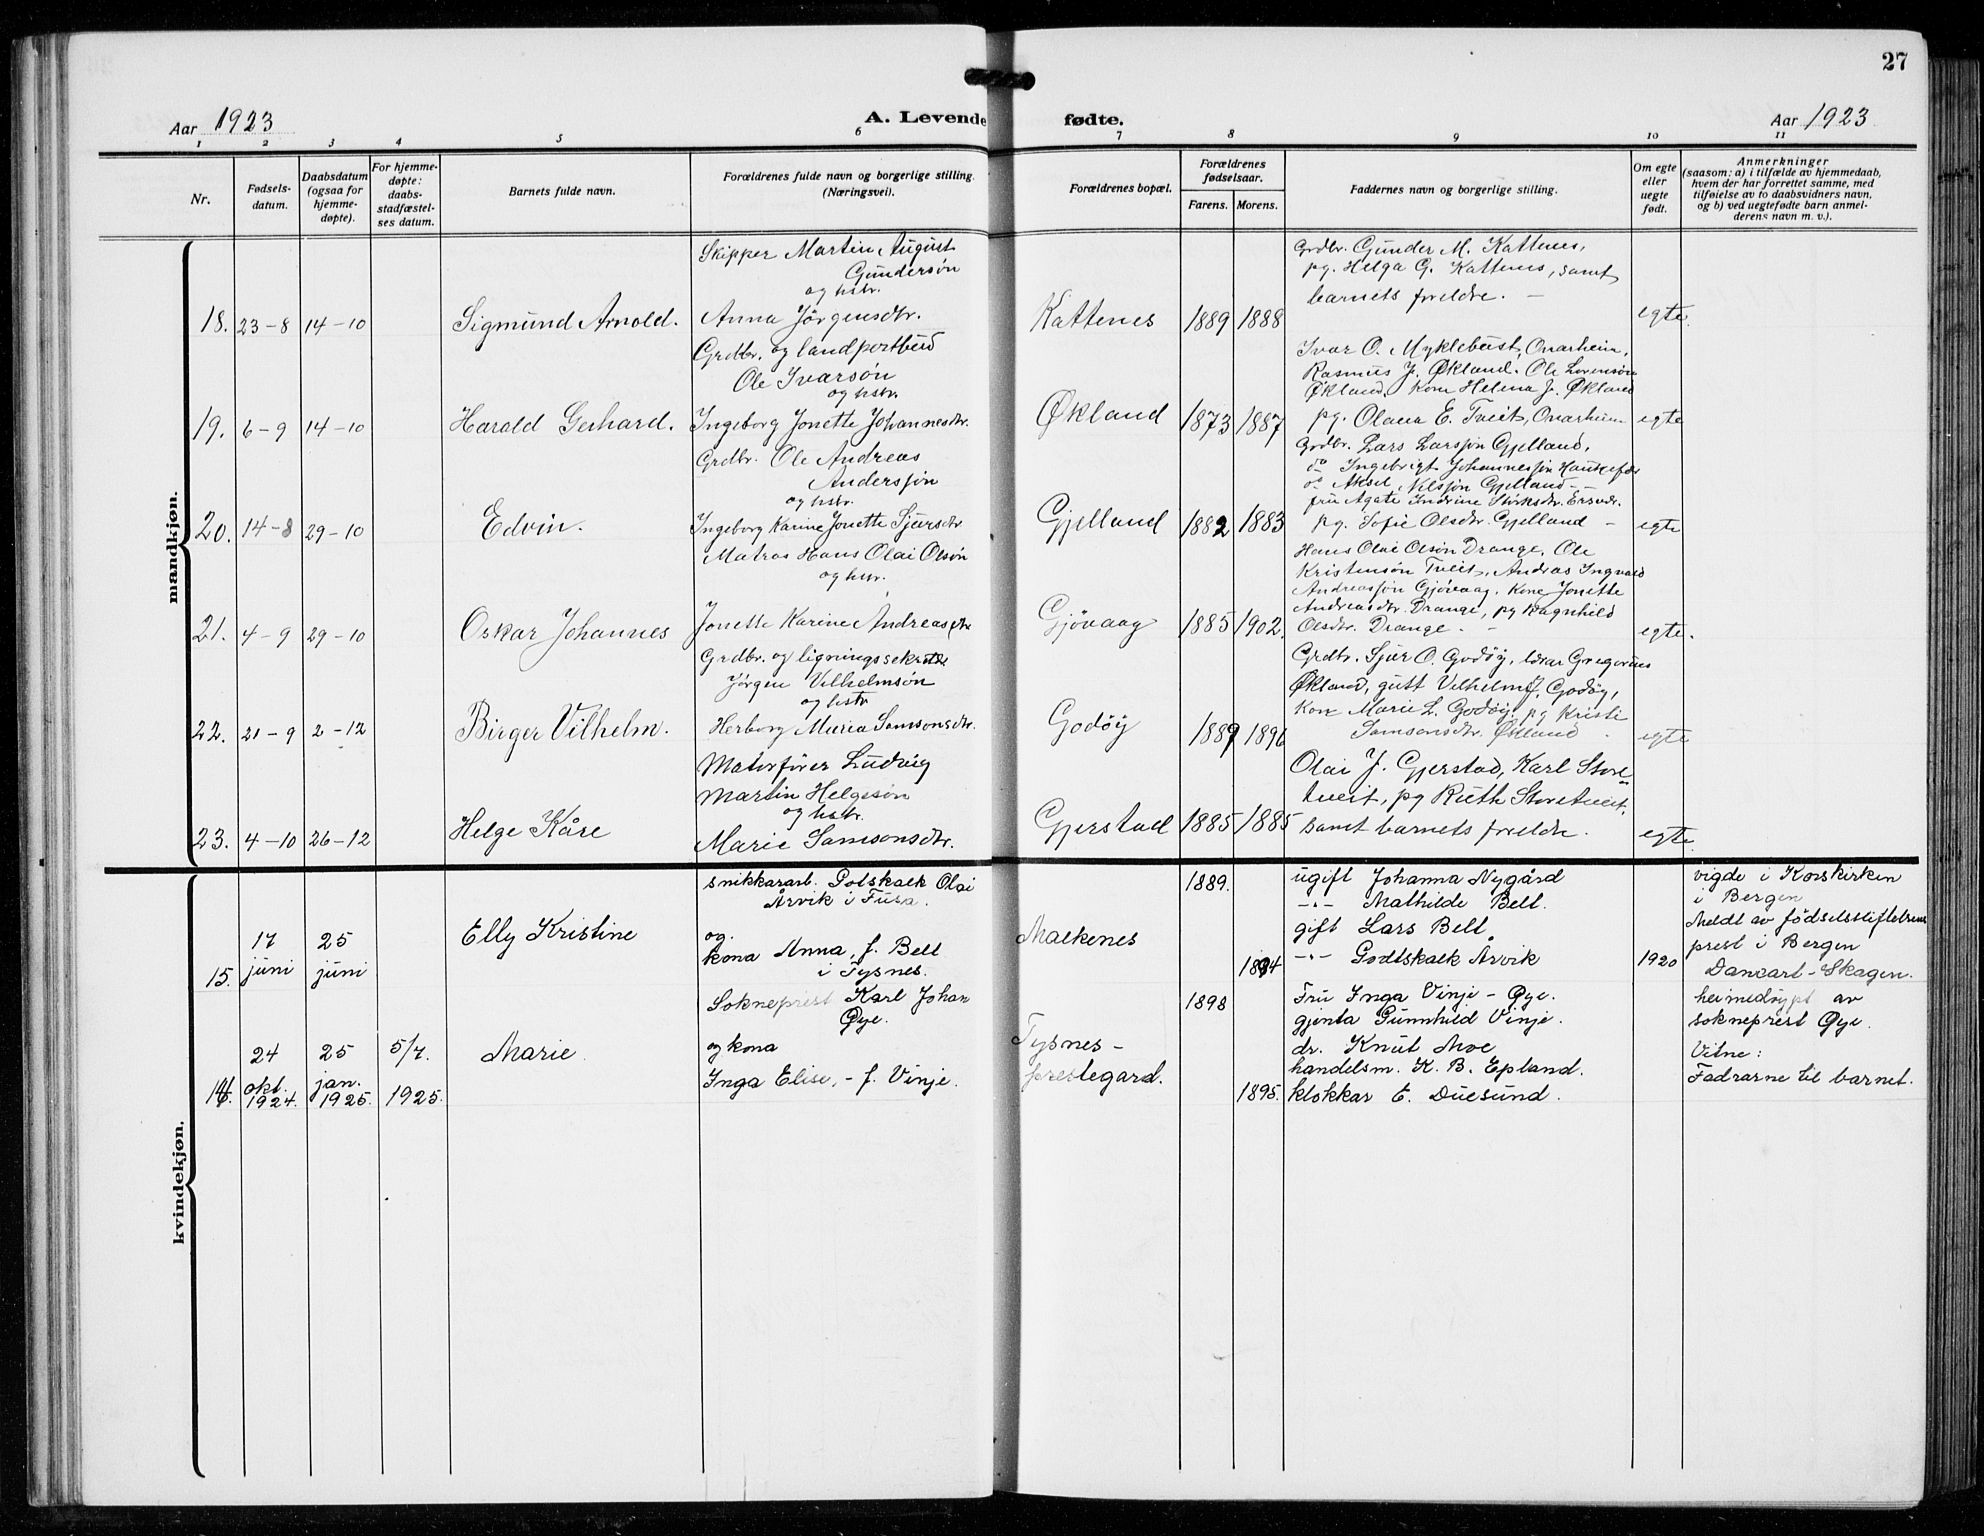 27
Aar 1923
A. Levende fødte.
Aar 1923
1 2 3 4 5 6 7 8 9 10 11
Nr.
Fødsels-
datum.
Daabsdatum
(ogsaa for
hjemme-
døpte).
For hjemme-
døpte:
daabs-
stadfæstel-
ses datum.
Barnets fulde navn.
Forældrenes fulde navn og borgerlige stilling.
(Næringsvei).
Forældrenes bopæl.
Forældrenes
fødselsaar.
Farens. Morens.
Faddernes navn og borgerlige stilling.
Om egte
eller
uegte
født.
Anmerkninger
(saasom: a) i tilfælde av hjemmedaab,
hvem der har forrettet samme, med
tilføielse av to daabsvidners navn,
og b) ved uegtefødte barn anmel-
derens navn m. v.).
mandkjøn.
18. 23-8 14-10 Sigmund Arnold.
Skipper Martin August
Gundersøn
og hstr.
Anna Jörgensdtr.
Kattenes 1889 1888
Grdbr. Gunder M. Kattenes,
pg. Helga G. Kattenes, samt
barnets foreldre. -
egte.
19. 6-9 14-10 Harald Gerhard.
Grdbr. og landpostbud
Ole Ivarsøn
og hstr.
Ingeborg Jonette Johannesdtr.
Økland 1873 1887
Ivar O. Myklebust, Onarheim,
Rasmus J. Økland. Ole Lorensøn
Økland. Kone Helena J. Økland
pg. Olana E. Tveit, Onarheim
egte
20. 14-8 29-10 Edvin.
Grdbr. Ole Andreas
Andersjøn
og hstr.
Ingeborg Karine Jonette Sjursdtr
Gjelland 1882 1883
Grdbr. Lars Larssjøn Gjelland,
do Ingebrigt Johannesjøn
do Aksel Nilssjøn Gjelland -
fru Agate Indrine
pg. Sofie Olsdtr. Gjelland -
egte
21. 4-9 29-10 Oskar Johannes
Matros Hans Olai Olsøn
og hstr.
Jonette Karine Andreasdtr
Gjøvaag 1885 1902.
Hans Olai Olsøn Drange, Ole
Kristensøn Tveit, Andreas Ingvald
Andreasjøn Gjøvaag. Kone Jonette
Andreasdtr. Drange, pg Ragnhild
Olsdtr. Drange. -
egte.
22. 21-9 2-12 Birger Vilhelm.
Grdbr. og ligningssekretær
Jørgen Vilhelmsøn
og hstr
Herborg Maria Samsonsdtr.
Godøy 1889 1896
Grdbr. Sjur O. Godøy, lærar Gregorius
Økland, gutt Vilhelm J. Godøy,
Kone Marie L. Godøy, pg Kristi
Samsonsdtr. Økland.
egte
23. 4-10 26-12 Helge Kåre
Motorfører Ludvig
Martin Helgesøn
og hstr.
Marie Samsonsdtr.
Gjerstad 1885 1885
Olai J. Gjerstad, Karl Store-
tveit, pg Ruth Storetveit,
samt barnets foreldre.
egte.
kvindekjøn.
15. 17
juni
25
juni
Elly Kristine
snikkararb. Gotskalk Olai
Årvik i Fusa.
og
kona Anna, f. Belt
i Tysnes.
Malkenes 1889. 1894
ugift Johanna Nygård
-"- Mathilde Belt.
gift Lars Belt
-"- Godtskalk Årvik
1920
vigde i Korskirken
i Bergen
Meldt av fødselsstiftelsens
prest i Bergen
Danvart-Skagen.
24
okt.
1924.
25
jan.
1925.
5/7.
1925.
Marie.
Sokneprest Karl Johan
Øye.
og kona
Inga Elise, - f. Vinje.
Tysnes -
prestegard.
1898 1895.
Fru Inga Vinje - Øye.
gjenta Gunnhild Vinje.
dr. Knut Moe
handelsm. K. B. Epland.
klokkar E. Duesund.
heimedøypt av
sokneprest Øye.
Vitne:
Fadrarne til barnet.